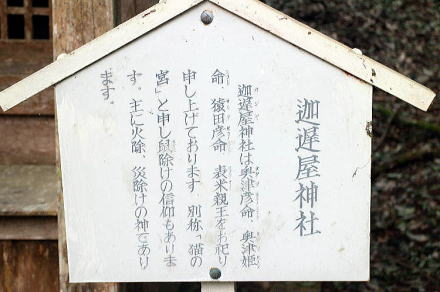 迦遅屋神社
迦遅屋神社は奥津彦命 奥津姫
命、猿田彦命 表米親王をお祀り
申し上げております 別称「猫の
宮」と申し鼠除けの信仰もありま
す。主に火除、災除けの神であり
ます。